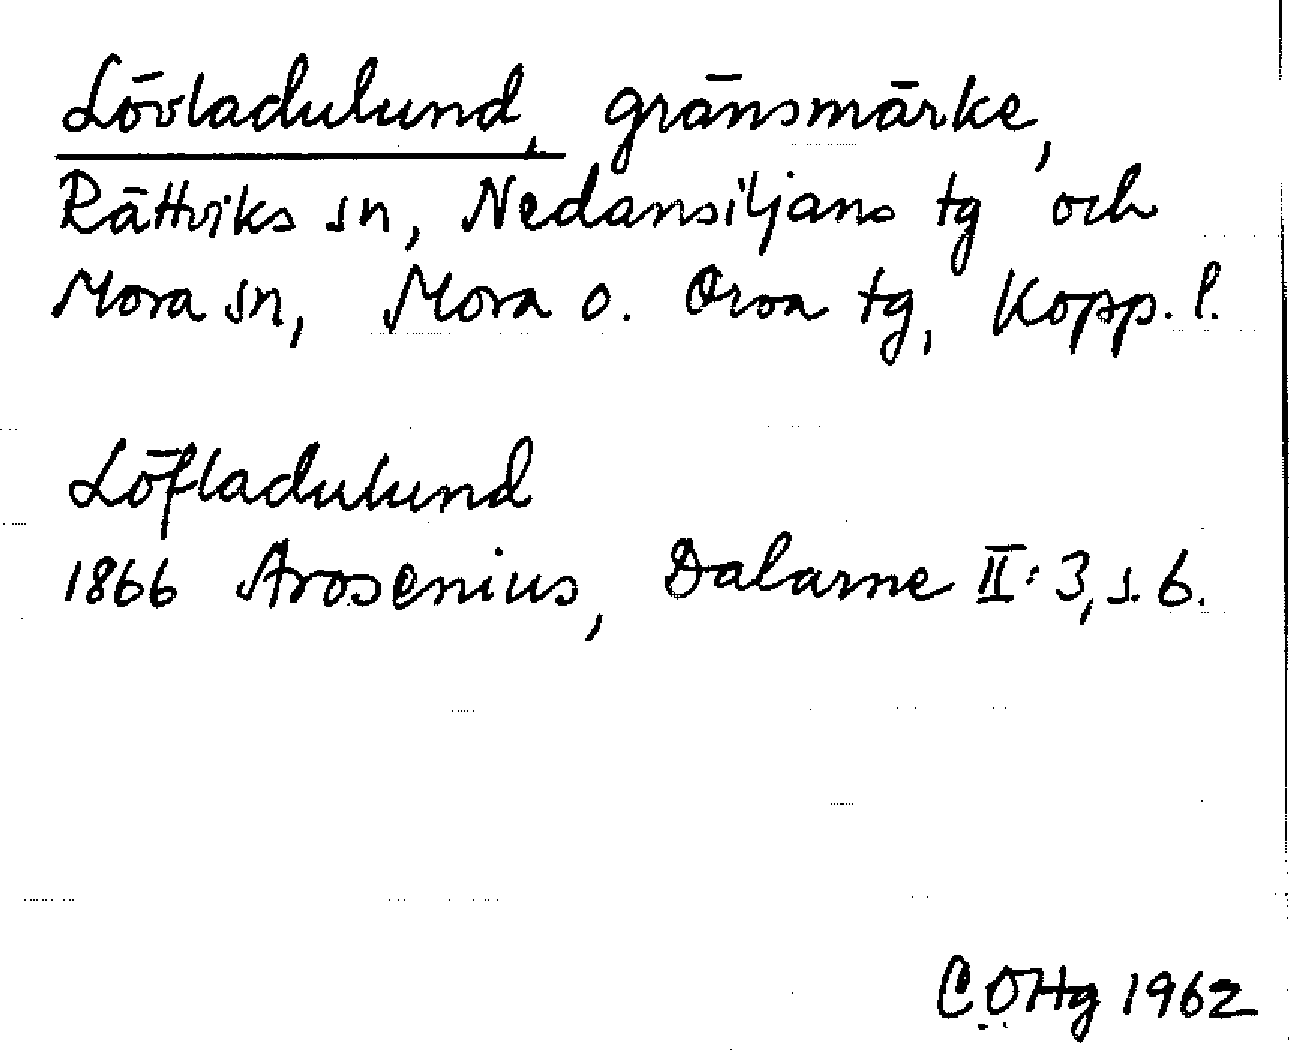 Lövladulund, gränsmärke,
Rättviks sn, Nedansiljans tg och
Mora sn, Mora o. Orsa tg, Kopp. l.
Löfladulund
1866 Arosenius, Dalarne II: 3, s. 6.
CÖHg 1962